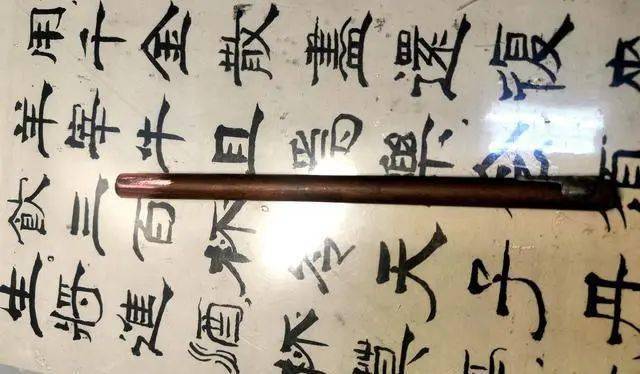 用千金散盡還復
羊宰牛且為
飲三百杯岑夫子丹
生將進酒杯